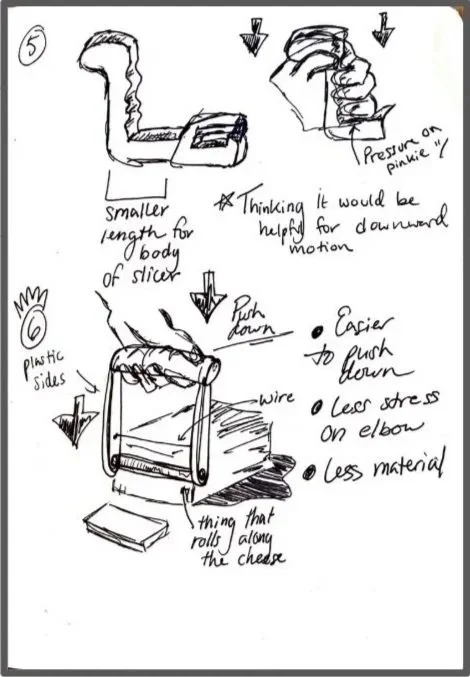 5
Pressure on
pinkie
smaller
length for
body
of slicer
Thinking it would be
helpful for downward
motion
6
plastic
sides
Push
down
wire
thing that
rolls along
the cheese
• Easier
to push
down
• Less stress
on elbow
• Less material